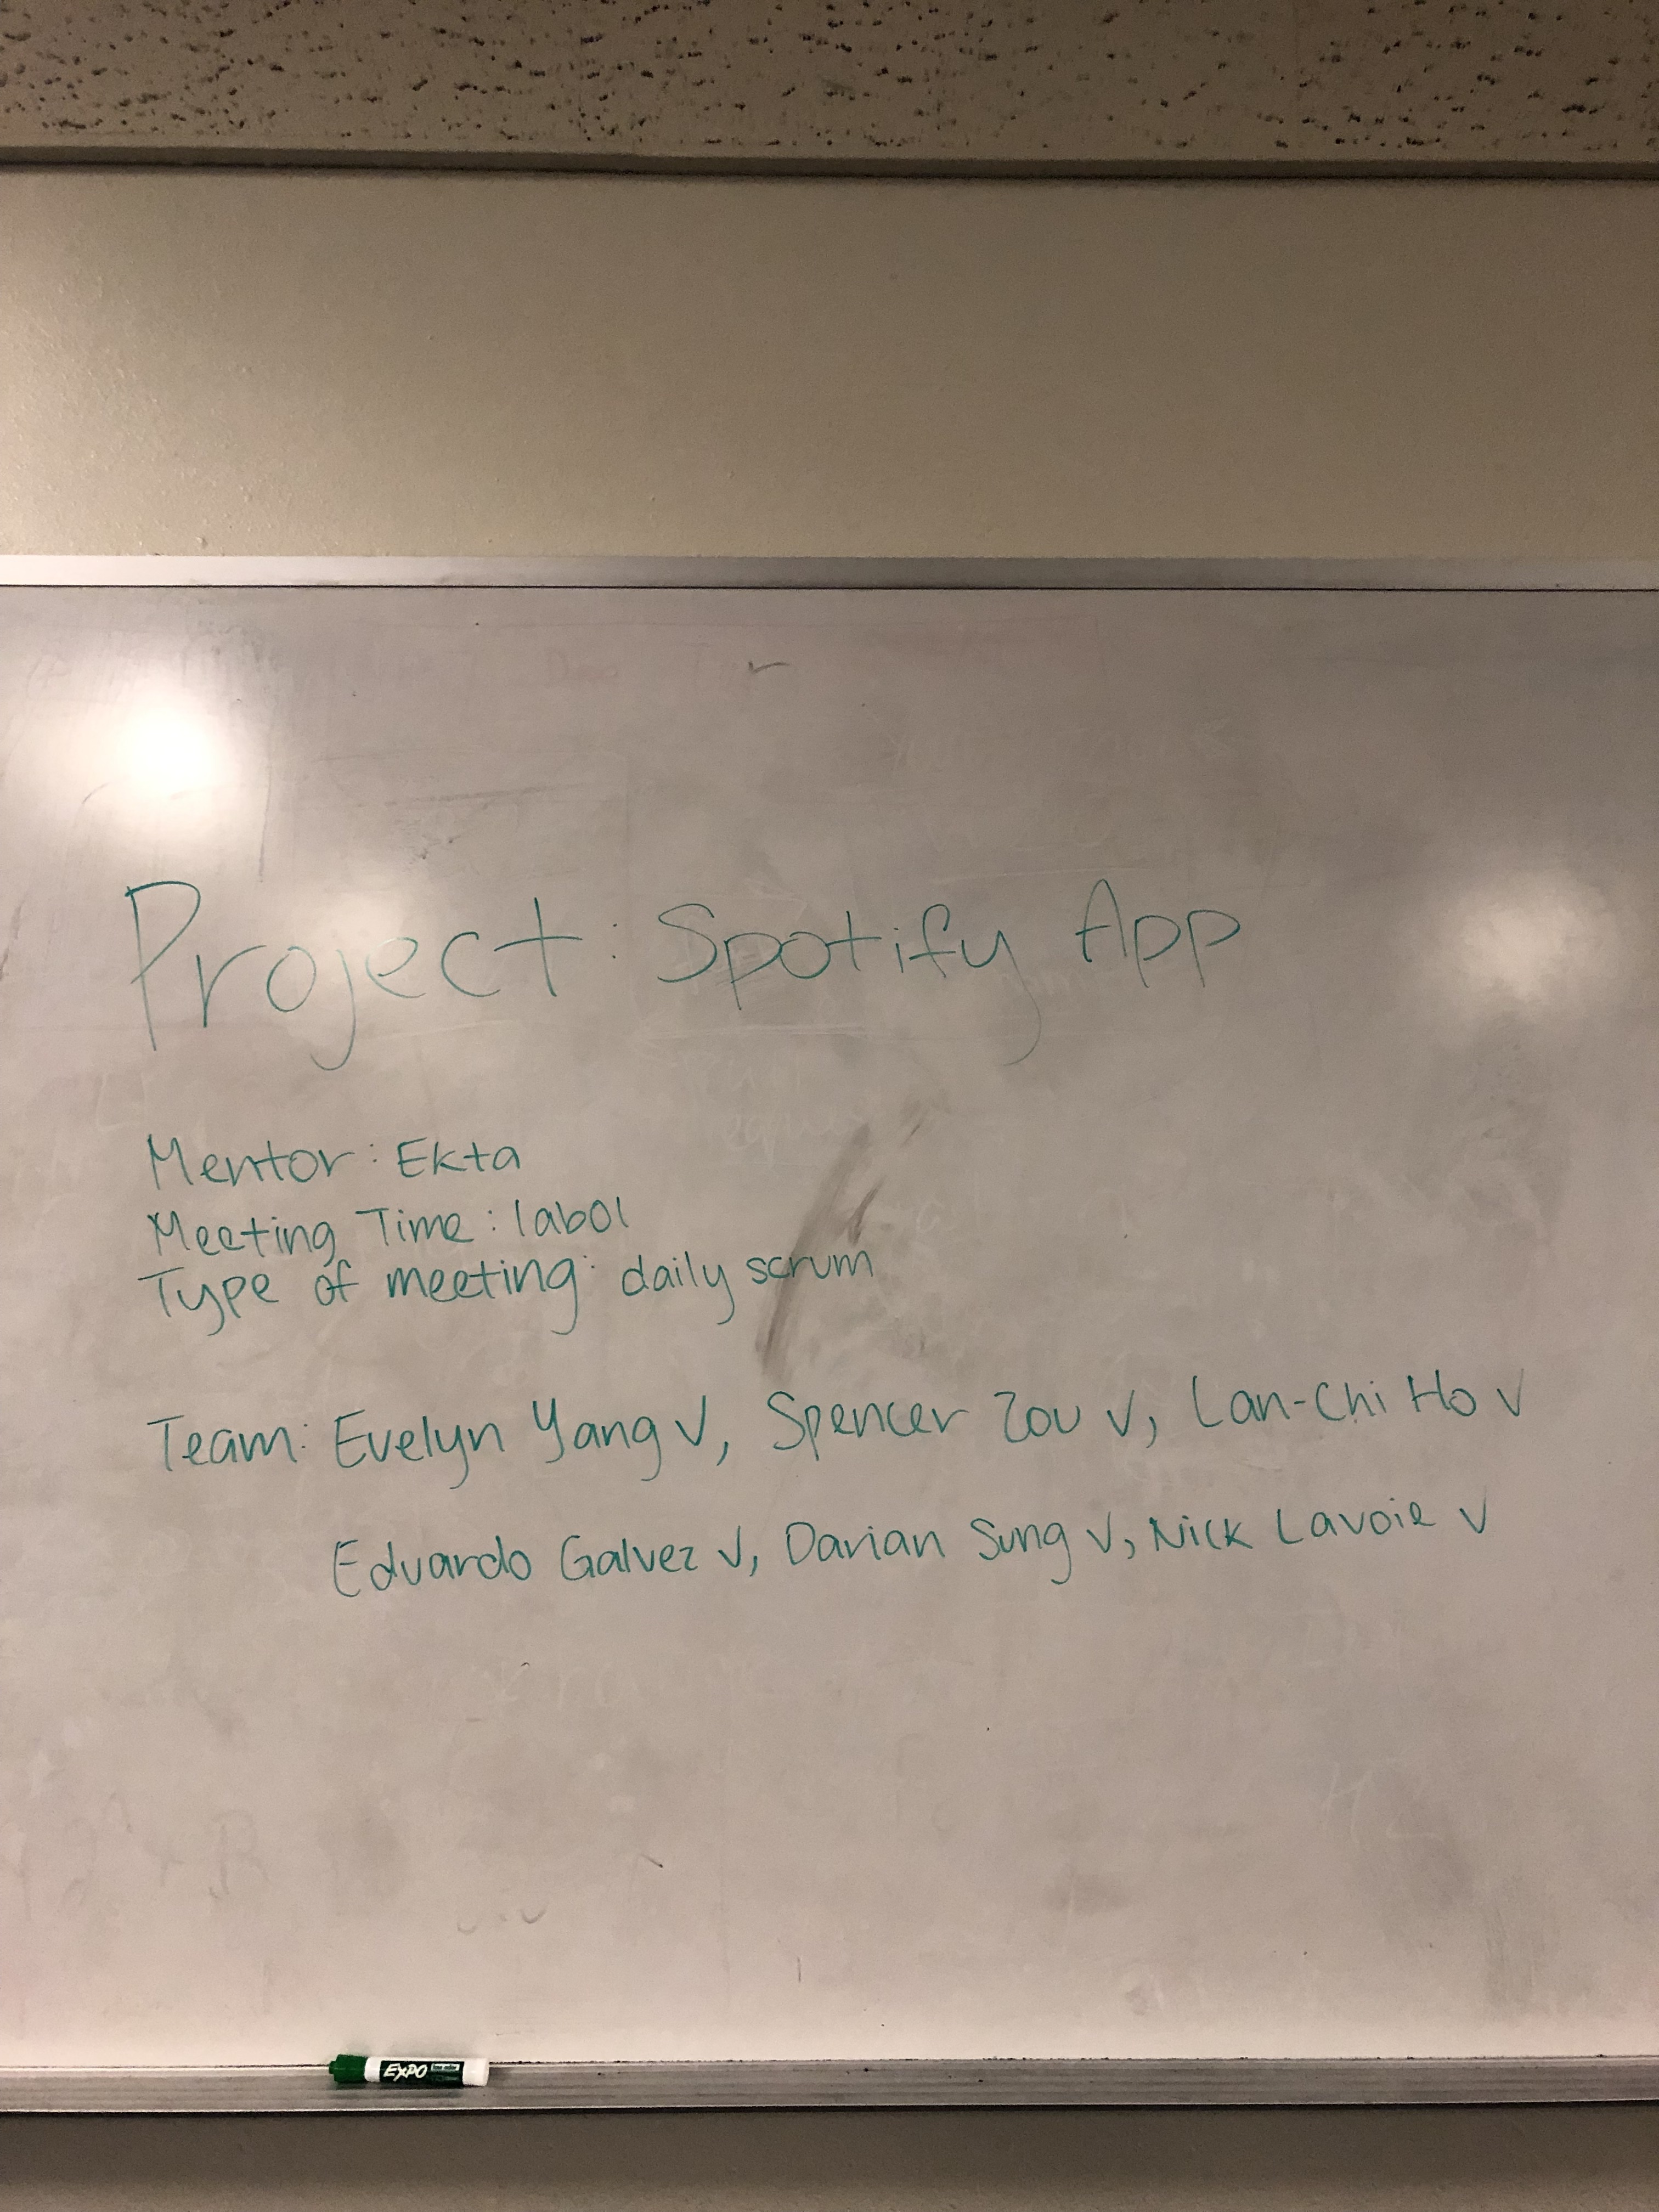 Project: Spotify App
Mentor: Ekta
Meeting Time: lab01
Type of meeting: daily scrum
Team: Evelyn Yang √, Spencer Zou √, Lan-Chi Ho √
Eduardo Galvez √, Darian Sung √, Nick Lavoie √
EXPO